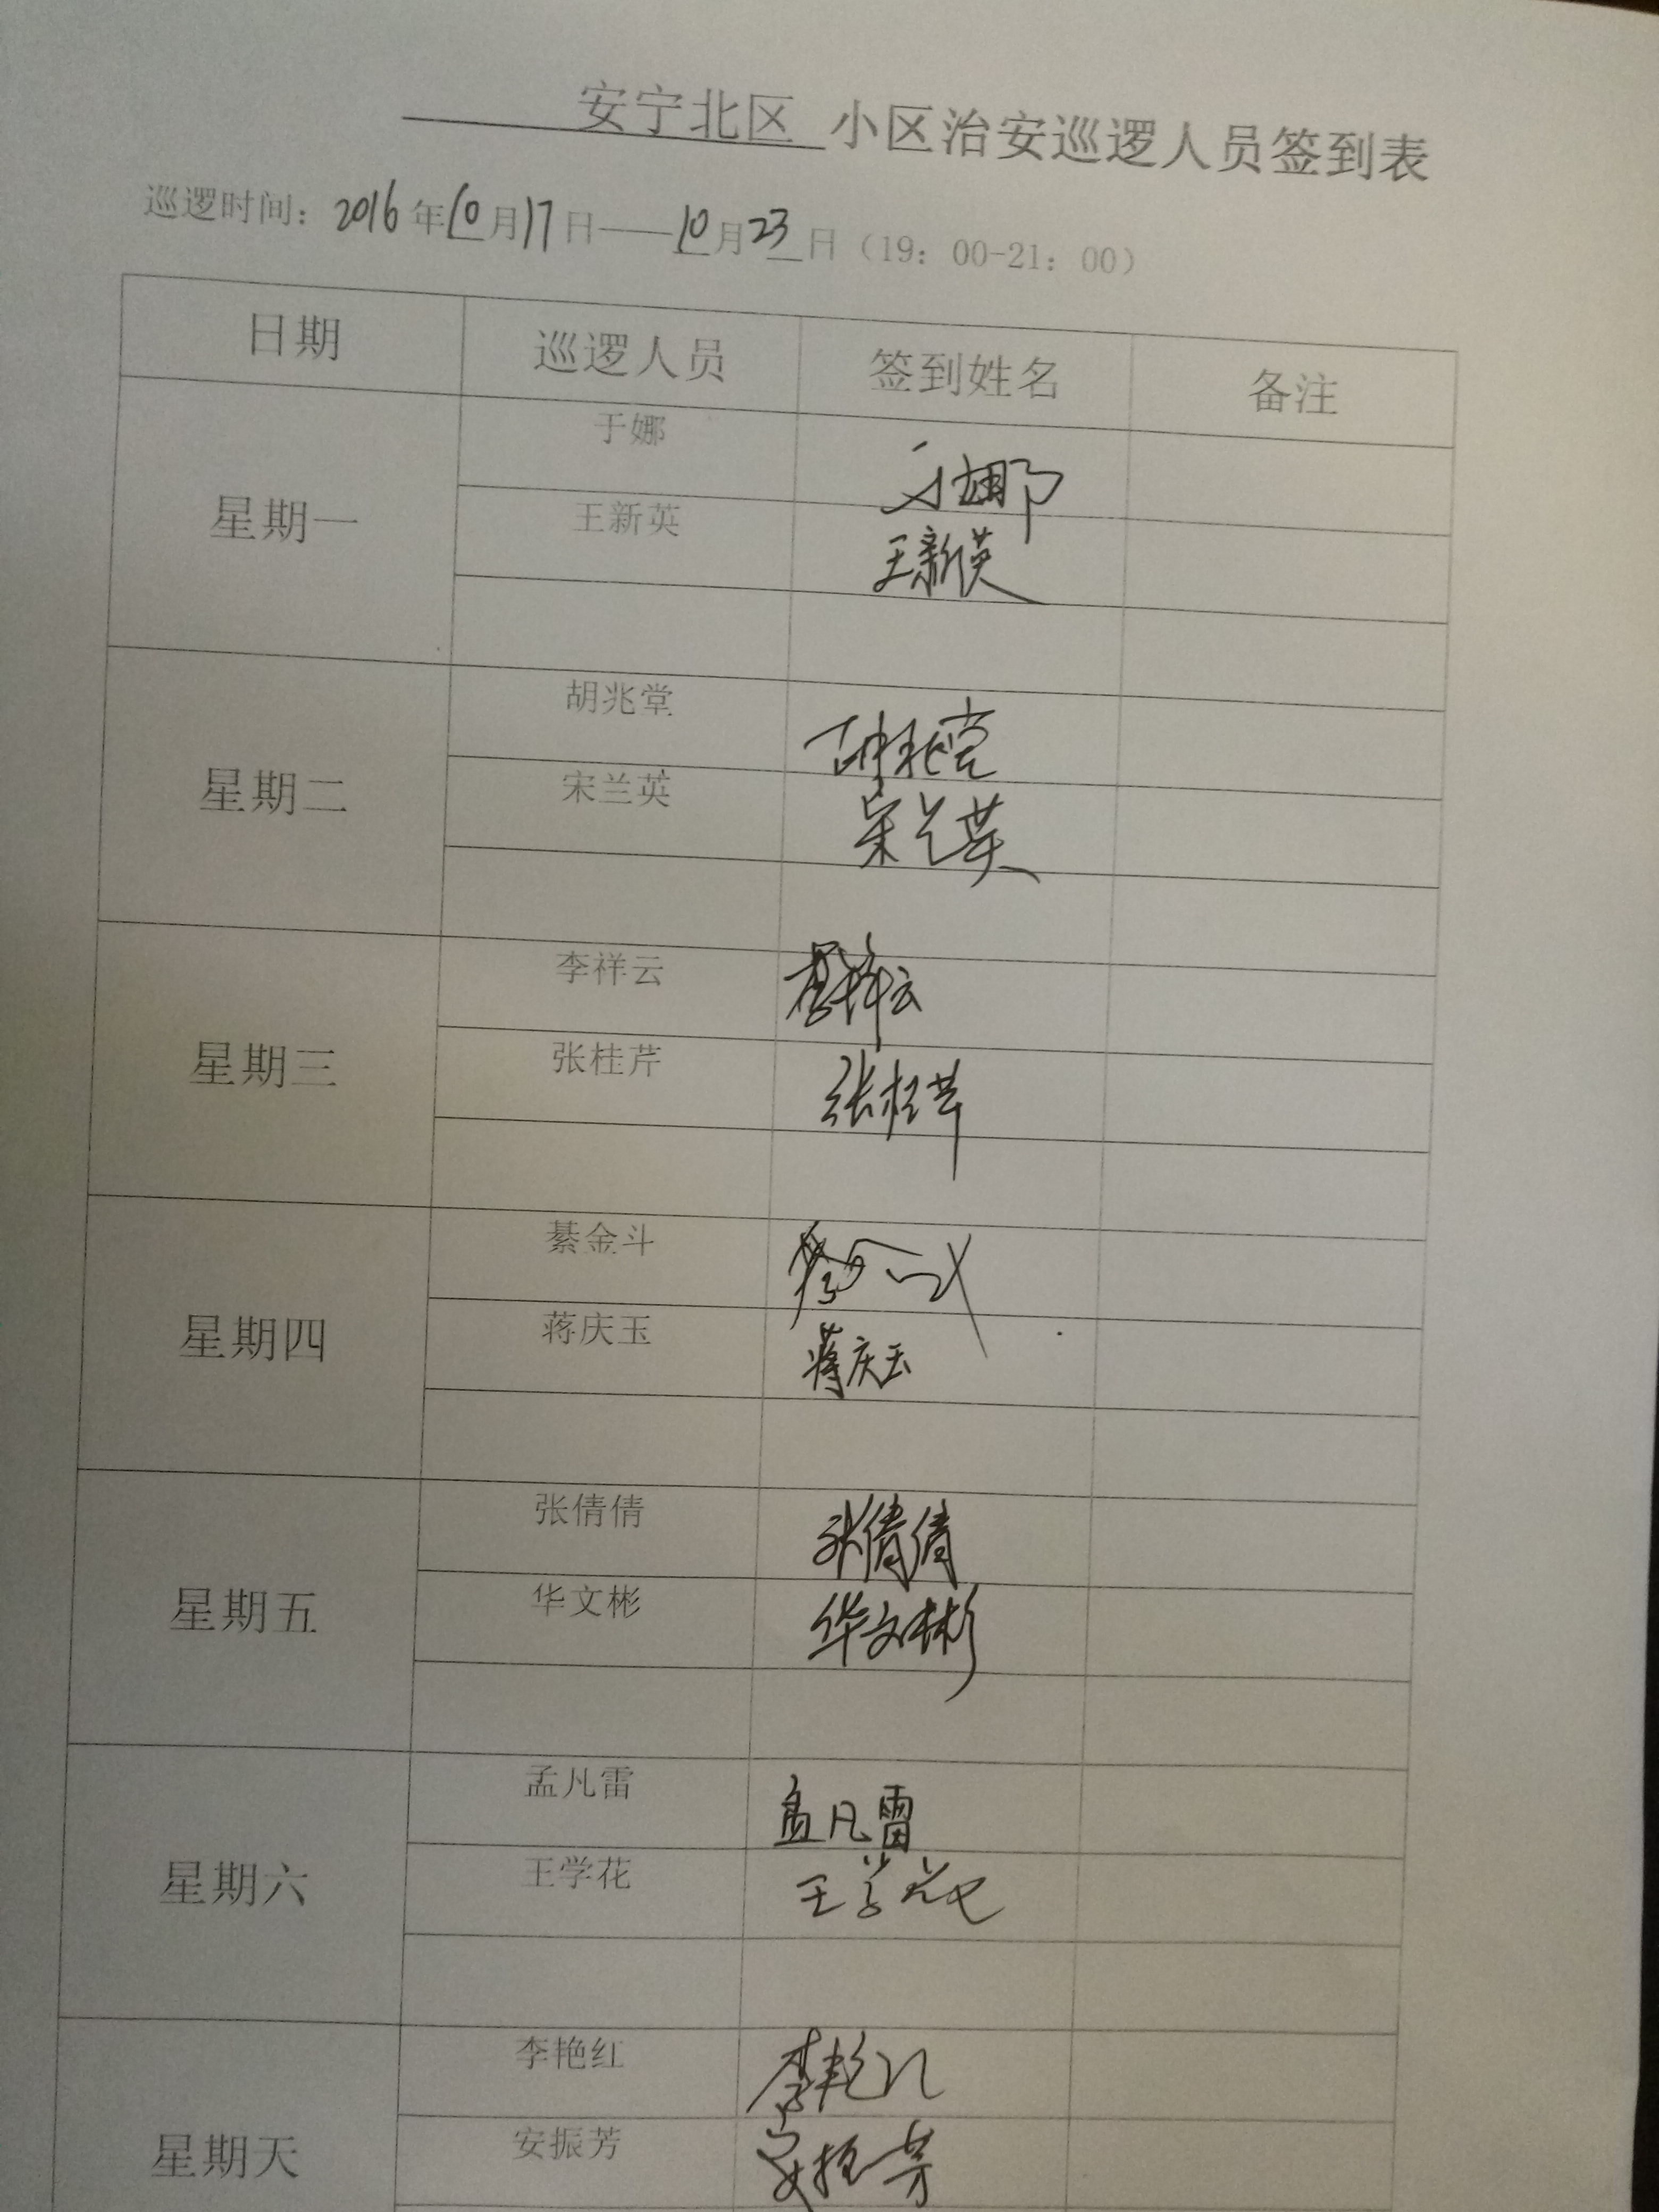 安宁北区 小区治安巡逻人员签到表
巡逻时间：2016年10月17日——10月23日（19：00-21：00）
日期 巡逻人员 签到姓名 备注
星期一
于娜 于娜
王新英 王新英
星期二
胡兆堂 胡兆堂
宋兰英 宋兰英
星期三
李祥云 李祥云
张桂芹 张桂芹
星期四
綦金斗 綦金斗
蒋庆玉 蒋庆玉
星期五
张倩倩 张倩倩
华文彬 华文彬
星期六
孟凡雷 孟凡雷
王学花 王学花
星期天
李艳红 李艳红
安振芳 安振芳